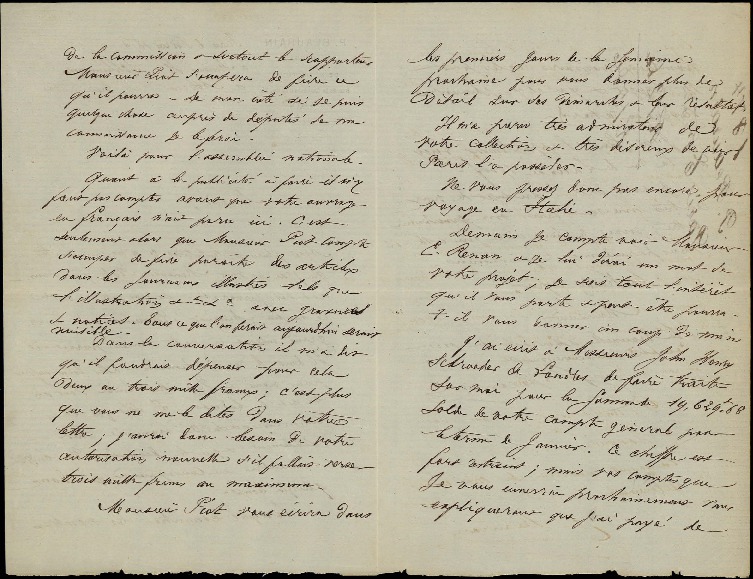 de la commission & surtout le rapporteur
Monsieur Piot s'occupera de faire ce
qu'il pourra – de mon côté si je puis
quelque chose auprès de députés de ma
connaissance je le ferai.
Voilà pour l'assemblée nationale.
Quant à la publicité à faire il n'y
faut pas compter avant que votre ouvrage
en français n'ait paru ici. C'est
seulement alors que Monsieur Piot compte
s'occuper de faire paraître des articles
dans les journaux illustrés tels que
l'illustration avec gravures
& notices. Tout ce que l'on ferait aujourd'hui serait
nuisible.
Dans la conversation il m'a dit
qu'il faudrait dépenser pour cela
deux ou trois mille francs; c'est plus
que vous ne me le dites dans votre
lettre; j'aurai donc besoin de votre
autorisation nouvelle s'il fallait verser
trois mille francs au maximum.
Monsieur Piot vous écrira dans
les premiers jours de la semaine
prochaine pour vous donner plus de
détail sur ses démarches & leur résultat.
Il m'a paru très admirateur de
votre collection & très désireux de voir
Paris la posséder.
Ne vous pressez donc pas encore, pour
voyage en Italie.
Demain je compte voir Monsieur
E. Renan & je lui dirai un mot de
votre projet; je sais tout l'intérêt
qu'il vous porte & peut-être pourra-
t-il vous donner un coup de main
J'ai écrit à Messieurs John Henry
Schroeder de Londres de faire traite
sur moi pour la somme 19,629.68
solde de votre compte général pour
le terme de Janvier. Ce chiffre est
fort restreint; mais vos comptes que
je vous enverrai prochainement vous
expliqueront que j'ai payé de